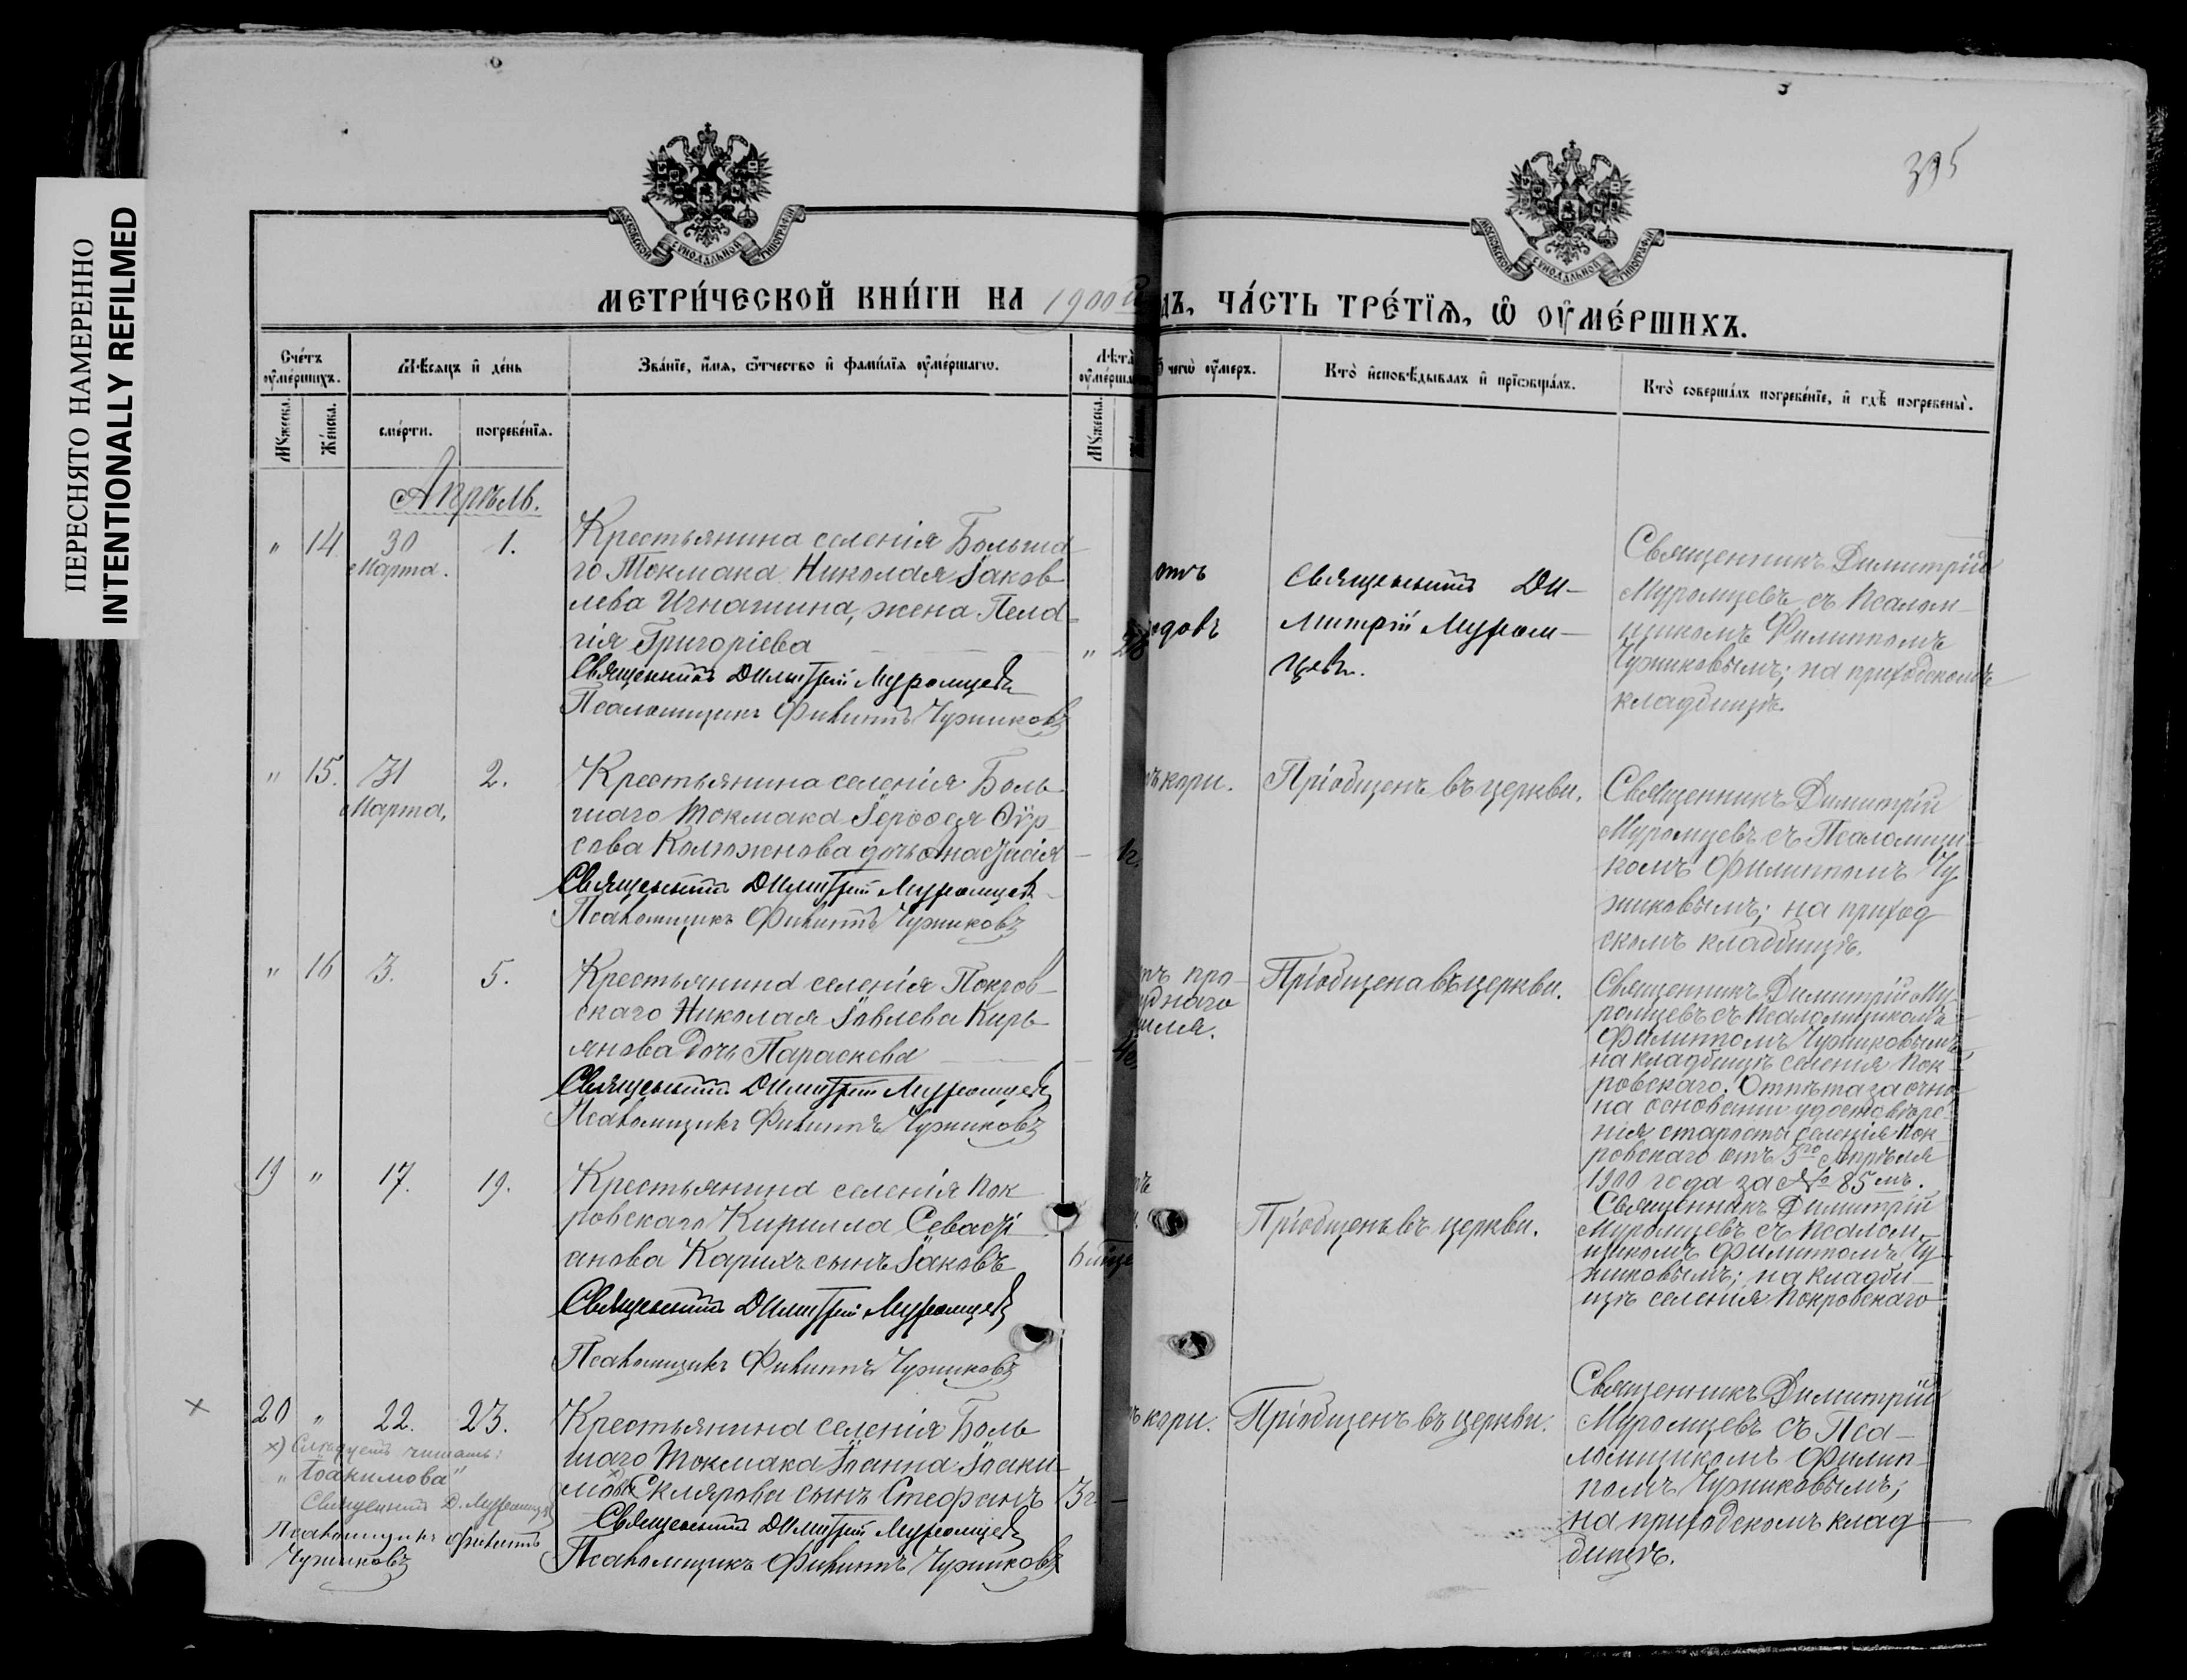 ПЕРЕСНЯТО НАМЕРЕННО
INTENTIONALLY REFILMED
395
МОСКОВСКОЙ СѴНОДАЛЬНОЙ ТИПОГРАФІИ
МОСКОВСКОЙ СѴНОДАЛЬНОЙ ТИПОГРАФІИ
МЕТРИ́ЧЕСКОЙ КНИ́ГИ НА 1900й
дъ, ЧА́СТЬ ТРЕ́ТЇѦ, Ѡ҆ ОУ҆МЕ́РШИХЪ.
Сче́тъ оу҆ме́ршихъ.
Мѣ́сяцъ и҆ де́нь
Зва́нїе, и҆́мя, ѻ҆́тчество и҆ фами́лїя оу҆ме́ршагѡ.
Лѣта̀ оу҆ме́рша
чегѡ̀ оу҆́меръ.
Кто̀ и҆сповѣ́дывалъ и҆ прїѡбща́лъ.
Кто̀ соверша́лъ погребе́нїе, и҆ гдѣ̀ погребены̀.
Мꙋ́жеска.
Же́нска.
сме́рти.
погребе́нїя.
Мꙋ́жеска.
Апрѣль.
" 14 30 Марта. 1.
Крестьянина селенія Больша-
го Токмака Николая Іаков
лева Игнашина, жена Пела-
гія Григоріева
Священникъ Димитрій Муромцевъ
Псаломщикъ Филиппъ Чужиковъ
" 28
отъ
одовъ
Священникъ Ди-
митрій Муром-
цевъ.
Священникъ Димитрій
Муромцевъ съ Псалом-
щикомъ Филиппомъ
Чужиковымъ; на приходскомъ
кладбищѣ.
" 15. 31 Марта, 2.
Крестьянина селенія Боль-
шаго Токмака
дочь Анастасія
Священникъ Димитрій Муромцевъ
Псаломщикъ Филиппъ Чужиковъ
кори.
Пріобщенъ въ церкви.
Священникъ Димитрій
Муромцевъ съ Псаломщи-
комъ Филиппомъ Чу
жиковымъ; на приход
скомъ кладбищѣ.
" 16 3. 5.
Крестьянина селенія Покров-
скаго Николая Іовлева Кирь-
янова дочь Параскева
Священникъ Димитрій Муромцевъ
Псаломщикъ Филиппъ Чужиковъ
про-
уднаго
шля.
Пріобщена въ церкви.
Священникъ Димитрій Му-
ромцевъ съ Псаломщикомъ
Филиппомъ Чужиковымъ,
на кладбищѣ селенія Пок-
ровскаго. Отпѣта заочно
на основаніи удостовѣре-
нія старосты селенія Пок-
ровскаго отъ 5го Апрѣля
1900 года за № 85 мъ.
19 " 17. 19.
Крестьянина селенія Пок
ровскаго Кирилла Севасті
анова Карихъ сынъ Іаковъ
Священникъ Димитрій Муромцевъ
Псаломщикъ Филиппъ Чужиковъ
Пріобщенъ въ церкви.
Священникъ Димитрій
Муромцевъ съ Псалом
щикомъ Филиппомъ Чу-
жиковымъ; на кладби-
щѣ селенія Покровскаго
× 20 " 22. 23.
Крестьянина селенія Боль
шаго Токмака Іоанна Іоаки-
мова Склярова сынъ Стефанъ 3г. —
Священникъ Димитрій Муромцевъ
Псаломщикъ Филиппъ Чужиковъ
кори.
Пріобщенъ въ церкви.
Священникъ Димитрій
Муромцевъ съ Пса-
ломщикомъ Филип-
помъ Чужиковымъ;
на приходскомъ клад-
бищѣ.
×) Слѣдуетъ читать:
"Іоакимова"
Священникъ Д. Муромцевъ
Псаломщикъ Филиппъ
Чужиковъ